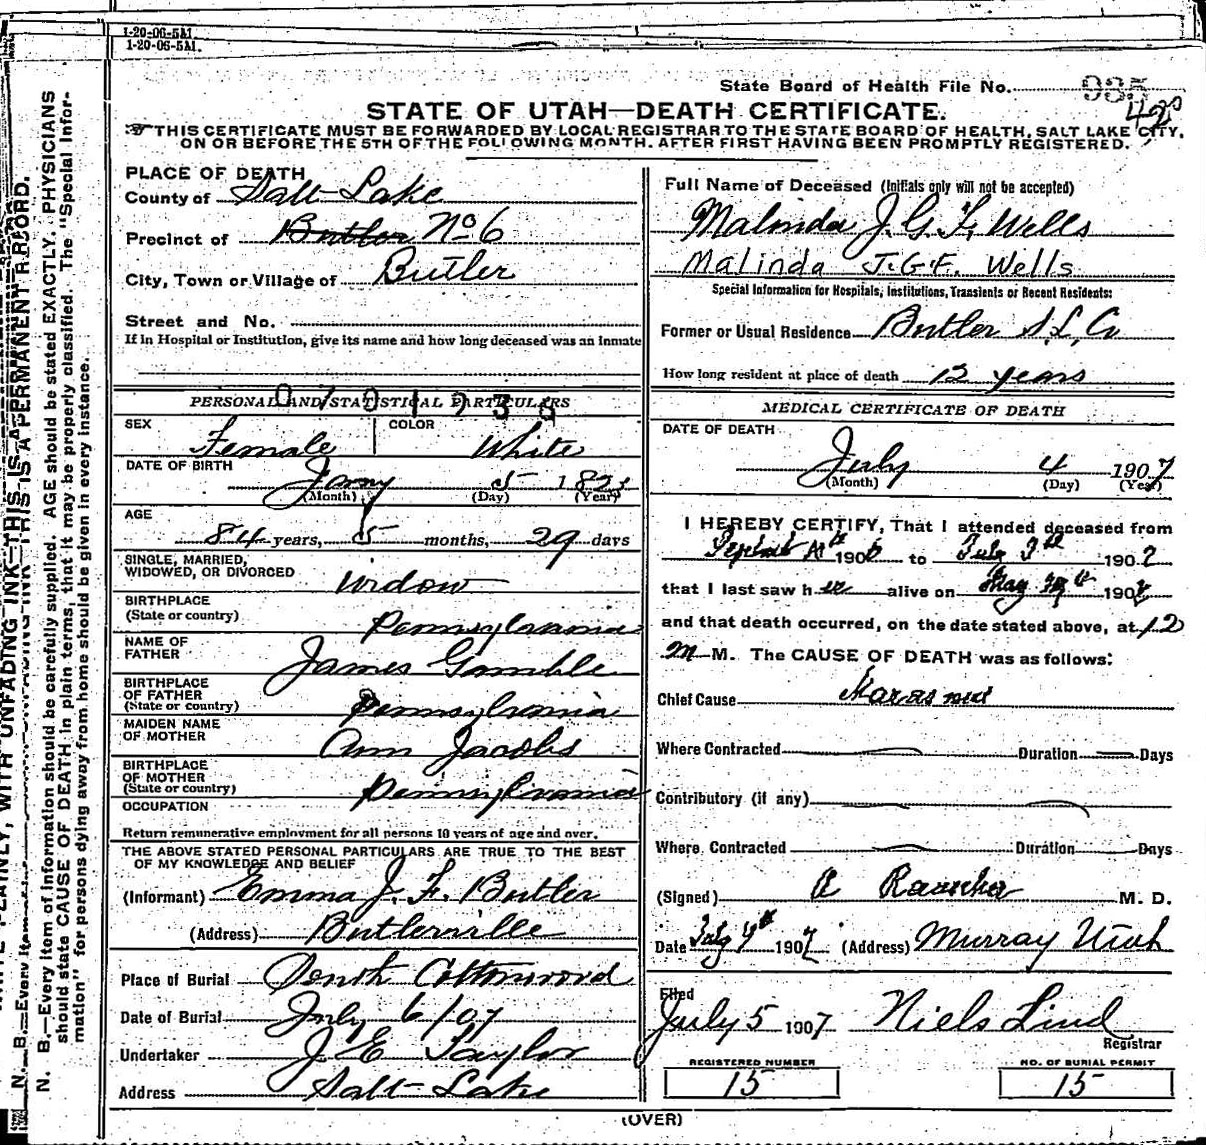 1-20-06-5M.
1-20-06-5M.
State Board of Health File No. 935
STATE OF UTAH—DEATH CERTIFICATE.
☞THIS CERTIFICATE MUST BE FORWARDED BY LOCAL REGISTRAR TO THE STATE BOARD OF HEALTH, SALT LAKE CITY,
ON OR BEFORE THE 5TH OF THE FOLLOWING MONTH, AFTER FIRST HAVING BEEN PROMPTLY REGISTERED.
PLACE OF DEATH
County of Salt Lake
Precinct of Butler No 6
City, Town or Village of Butler
Street and No.
If in Hospital or Institution, give its name and how long deceased was an inmate
PERSONAL AND STATISTICAL PARTICULARS
SEX Female COLOR White
DATE OF BIRTH Jany 5 182
(Month) (Day) (Year)
AGE
84 years, 5 months, 29 days
SINGLE, MARRIED,
WIDOWED, OR DIVORCED widow
BIRTHPLACE
(State or country) Pennsylvania
NAME OF
FATHER James Gamble
BIRTHPLACE
OF FATHER
(State or country) Pennsylvania
MAIDEN NAME
OF MOTHER Ann Jacobs
BIRTHPLACE
OF MOTHER
(State or country) Pennsylvania
OCCUPATION
Return remunerative employment for all persons 10 years of age and over.
THE ABOVE STATED PERSONAL PARTICULARS ARE TRUE TO THE BEST
OF MY KNOWLEDGE AND BELIEF
(Informant) Emma J. F. Butler
(Address) Butlerville
Place of Burial South Cottonwood
Date of Burial July 6/07
Undertaker J. E. Taylor
Address Salt Lake
Full Name of Deceased (Initials only will not be accepted)
Malinda J. G. F. Wells
Malinda J.G.F. Wells
Special Information for Hospitals, Institutions, Transients or Recent Residents:
Former or Usual Residence Butler S. L. Co
How long resident at place of death 12 years
MEDICAL CERTIFICATE OF DEATH
DATE OF DEATH
July 4 1907
(Month) (Day) (Year)
I HEREBY CERTIFY, That I attended deceased from
190 to July 190
that I last saw her alive on May 190
and that death occurred, on the date stated above, at 12
M. The CAUSE OF DEATH was as follows:
Chief Cause Marasmus
Where Contracted Duration Days
Contributory (if any)
Where Contracted Duration Days
(Signed) M. D.
Date July 1907 (Address) Murray Utah
Filed
July 5 1907 Niels Lind
Registrar
REGISTERED NUMBER NO. OF BURIAL PERMIT
15 15
(OVER)
N. B.—Every item of information should be carefully supplied. AGE should be stated EXACTLY. PHYSICIANS
should state CAUSE OF DEATH in plain terms, that it may be properly classified. The "Special Infor-
mation" for persons dying away from home should be given in every instance.